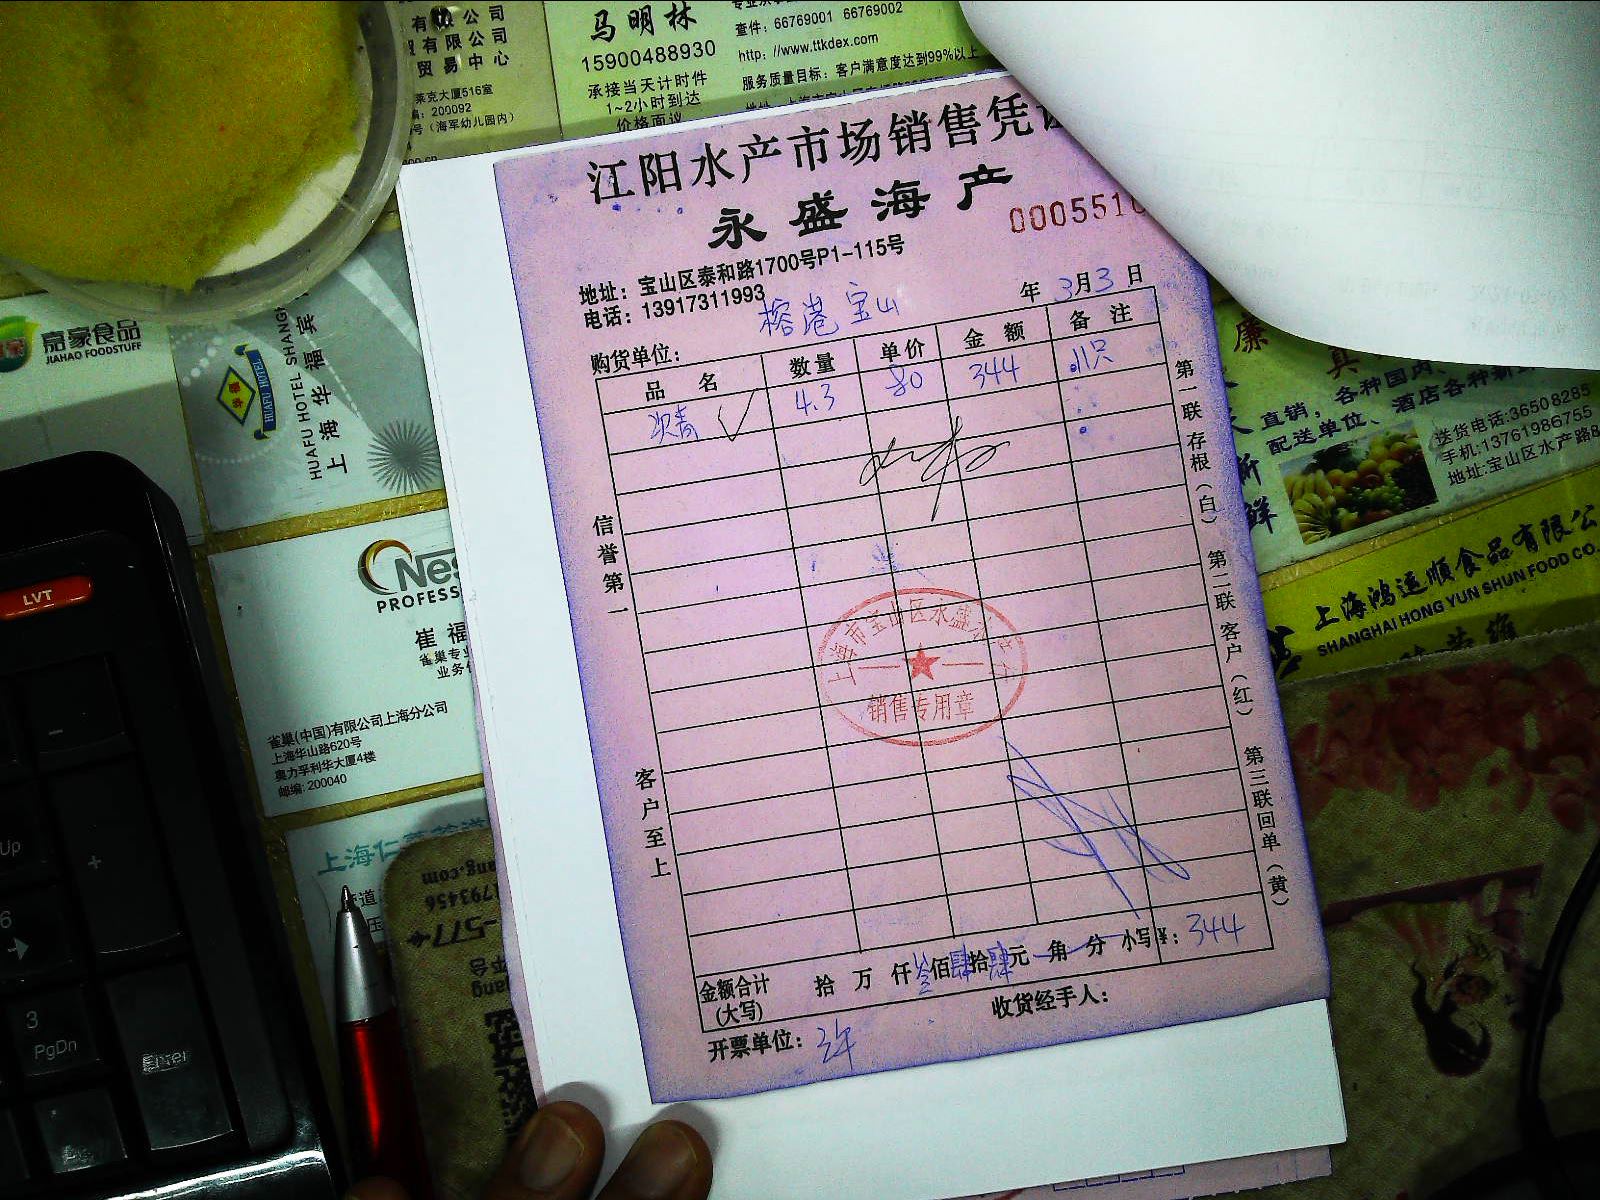 有限公司
贸有限公司
贸易中心
莱克大厦516室
编: 200092
号（海军幼儿园内）
马明林
15900488930
承接当天计时件
1~2小时到达
价格面议
查件: 66769001 66769002
http: //www.ttkdex.com
服务质量目标: 客户满意度达到99%以上
江阳水产市场销售凭证
永盛海产
0005510
地址: 宝山区泰和路1700号P1-115号
电话: 13917311993
榕港宝山
年 3月3日
购货单位:
品名 数量 单价 金额 备注
4.3 80 344 11只
信誉第一
客户至上
第一联 存根（白） 第二联 客户（红） 第三联 回单（黄）
上海市宝山区永盛
销售专用章
金额合计 拾 万 仟 叁佰肆拾肆元 角 分 小写¥: 344
(大写)
收货经手人:
开票单位: 许
嘉家食品
JIAHAO FOODSTUFF
华福
HUAFU HOTEL
HUAFU HOTEL SHANGH
上海华福宾
Nes
PROFESS
崔福
雀巢专业
业务
雀巢(中国)有限公司上海分公司
上海华山路620号
奥力孚利华大厦4楼
邮编: 200040
上海仁
LVT
Up
-
+
6
3
PgDn
Enter
廉
真
直销，各种国内、
配送单位、酒店各种新
送货电话:36508285
手机:13761986755
地址:宝山区水产路8
新鲜
上海鸿运顺食品有限公
SHANGHAI HONG YUN SHUN FOOD CO.